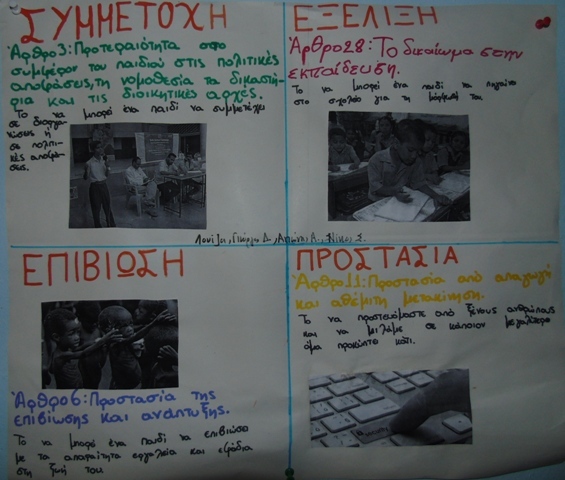 ΣΥΜΜΕΤΟΧΗ
Άρθρο 3: Προτεραιότητα στο
συμφέρον του παιδιού στις πολιτικές
αποφάσεις, τη νομοθεσία τα δικαστή-
ρια και τις διοικητικές αρχές.
Το να μπορεί ένα παιδί να συμμετέχει
σε
νώσεις ή
σε πολιτι-
κές αποφά-
σεις.
ΕΞΕΛΙΞΗ
Άρθρο 28: Το δικαίωμα στην
εκπαίδευση.
Το να μπορεί ένα παιδί να πηγαίνει
στο σχολείο για τη μόρφωσή του
Λουίζα, Γιώργος Δ., Αντώνης Α., Νίκος Σ.
ΕΠΙΒΙΩΣΗ
Άρθρο 6: Προστασία της
επιβίωσης και ανάπτυξης.
Το να μπορεί ένα παιδί να επιβιώσει
με τα απαραίτητα εργαλεία και εφόδια
στη ζωή του
ΠΡΟΣΤΑΣΙΑ
Άρθρο 11: Προστασία από απαγωγή
και αθέμιτη μετακίνηση.
Το να προστατευόμαστε από ξένους ανθρώπους
και να μιλάμε σε κάποιον μεγαλύτερο
άμα προκύπτει κάτι.